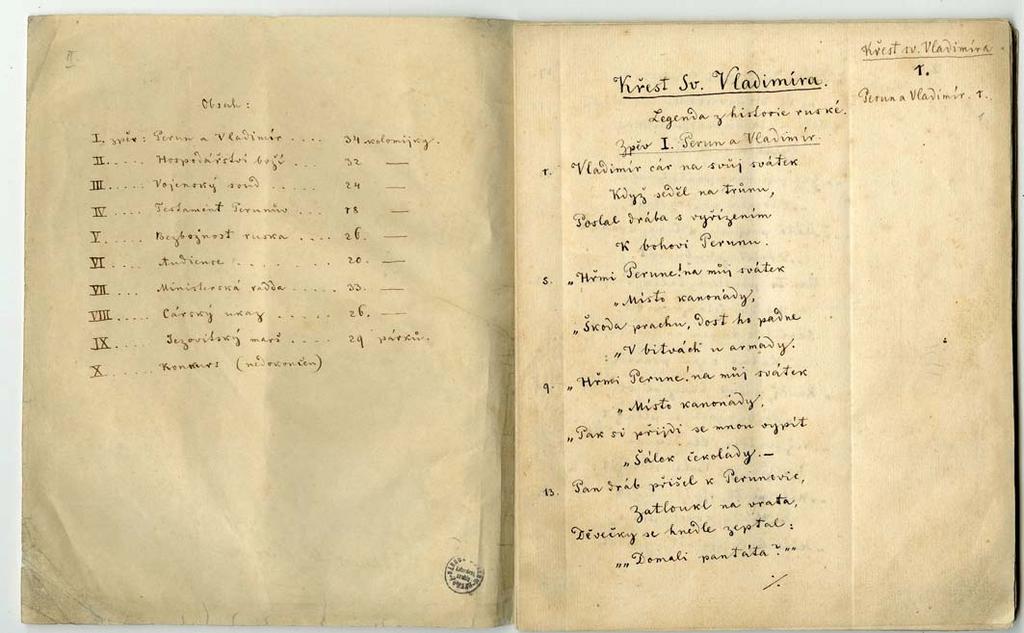 II.
Obsah:
I. zpěv: Perun a Vladimír .... 34 kolomijky.
II..... Hospodářství boží .... 32 —
III..... Vojenský soud ..... 24 —
IV.... Testament Perunův ... 18 —
V..... Bezbožnost ruska .... 26. —
VI.... Audience ........ 20. —
VII.... Ministerská radda ..... 33. —
VIII..... Cárský ukaz ..... 26. —
IX.... Jezovitský marš .... 29 párků.
X...... Konkurs (nedokončen)
Křest Sv. Vladimíra.
Legenda z historie ruské.
Zpěv I. Perun a Vladimír.
1. Vladimír cár na svůj svátek
Když seděl na trůnu,
Poslal drába s vyřízením
K bohovi Perunu.
5. „Hřmi Perune! na můj svátek
„Místo kanonády,
„Škoda prachu, dost ho padne
„V bitvách u armády.
9. „Hřmi Perune! na můj svátek
„Místo kanonády,
„Pak si přijdi se mnou vypít
„Šálek čekolády. —
13. Pan dráb přišel k Perunovic,
Zatloukl na vrata,
Děvečky se hnedle zeptal:
„„Domali pantáta?““
./.
Křest sv. Vladimíra
1.
Perun a Vladimír. 1.
1